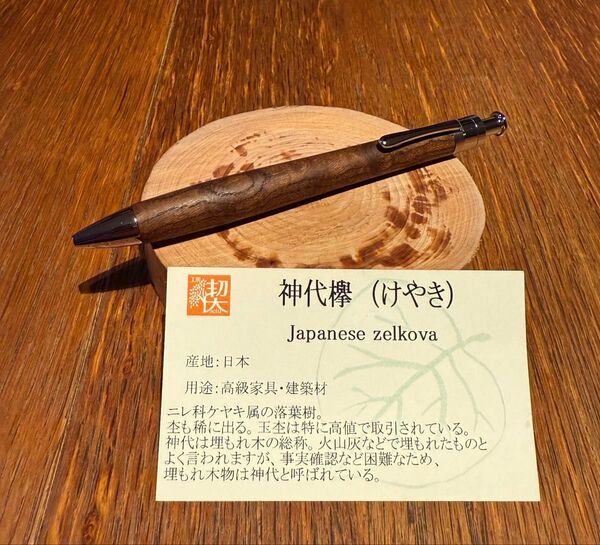 工房
楔
神代欅 (けやき)
Japanese zelkova
産地:日本
用途:高級家具・建築材
ニレ科ケヤキ属の落葉樹。
杢も稀に出る。玉杢は特に高値で取引されている。
神代は埋もれ木の総称。火山灰などで埋もれたものと
よく言われますが、事実確認など困難なため、
埋もれ木物は神代と呼ばれている。